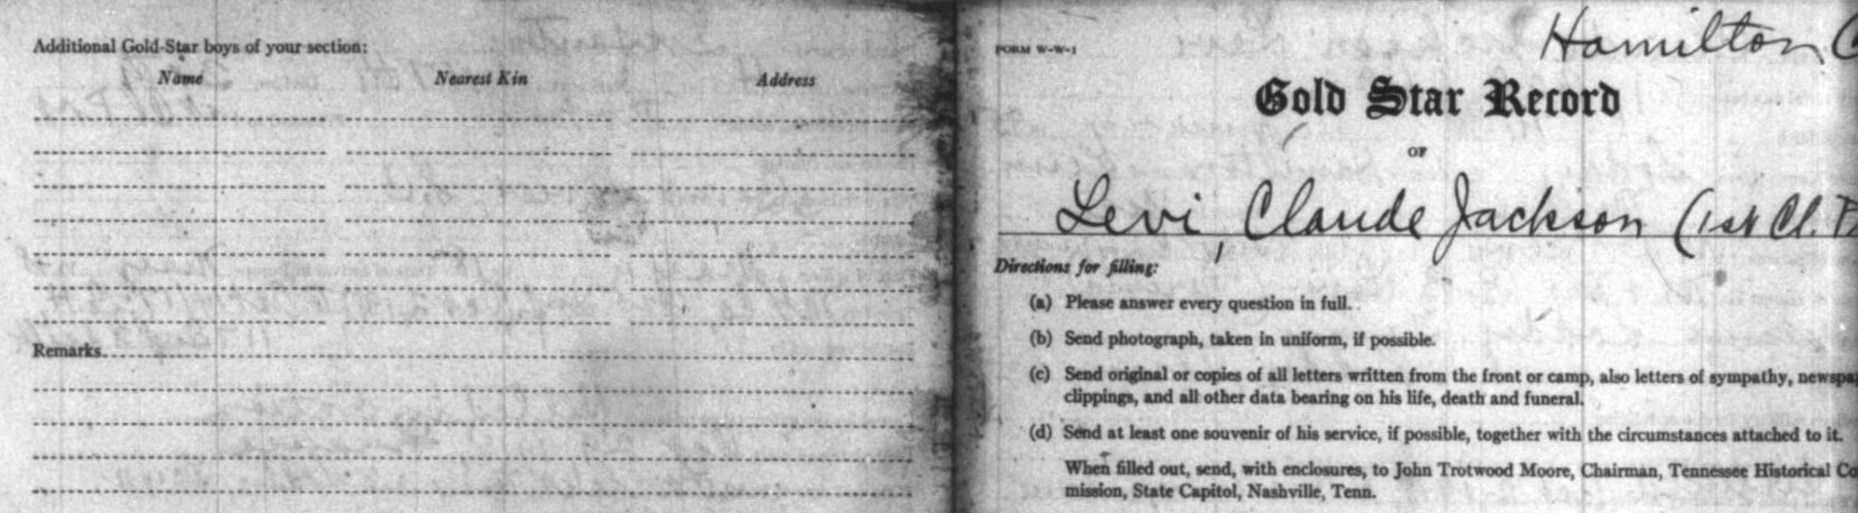 Additional Gold-Star boys of your section:
Name Nearest Kin Address
Remarks
FORM W-W-1
Hamilton C
Gold Star Record
OF
Levi, Claude Jackson (1st Cl. P
Directions for filling:
(a) Please answer every question in full.
(b) Send photograph, taken in uniform, if possible.
(c) Send original or copies of all letters written from the front or camp, also letters of sympathy, newspa
clippings, and all other data bearing on his life, death and funeral.
(d) Send at least one souvenir of his service, if possible, together with the circumstances attached to it.
When filled out, send, with enclosures, to John Trotwood Moore, Chairman, Tennessee Historical Co
mission, State Capitol, Nashville, Tenn.